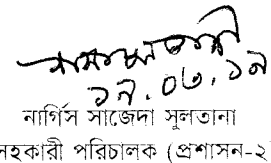 ১৯.০৬.১৯
নার্গিস সাজেদা সুলতানা
সহকারী পরিচালক (প্রশাসন-২